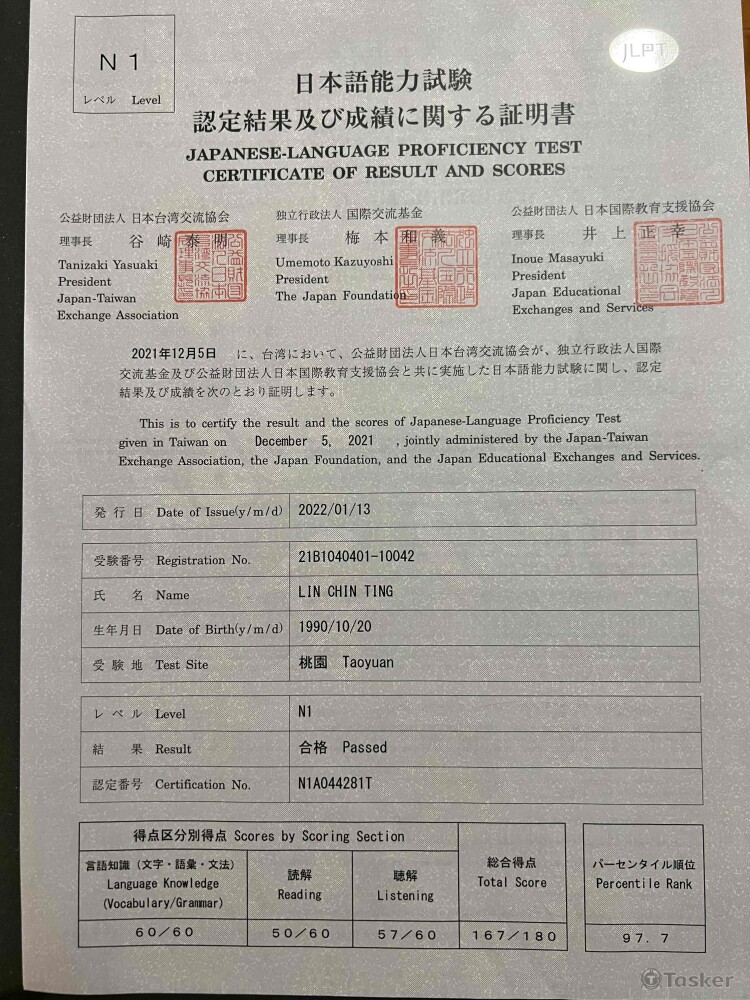 N1
レベル Level
JLPT
日本語能力試験
認定結果及び成績に関する証明書
JAPANESE-LANGUAGE PROFICIENCY TEST
CERTIFICATE OF RESULT AND SCORES
公益財団法人 日本台湾交流協会
理事長 谷崎泰明
Tanizaki Yasuaki
President
Japan-Taiwan
Exchange Association
独立行政法人 国際交流基金
理事長 梅本和義
Umemoto Kazuyoshi
President
The Japan Foundation
公益財団法人 日本国際教育支援協会
理事長 井上正幸
Inoue Masayuki
President
Japan Educational
Exchanges and Services
2021年12月5日 に、台湾において、公益財団法人日本台湾交流協会が、独立行政法人国際
交流基金及び公益財団法人日本国際教育支援協会と共に実施した日本語能力試験に関し、認定
結果及び成績を次のとおり証明します。
This is to certify the result and the scores of Japanese-Language Proficiency Test
given in Taiwan on December 5, 2021 , jointly administered by the Japan-Taiwan
Exchange Association, the Japan Foundation, and the Japan Educational Exchanges and Services.
発行日 Date of Issue(y/m/d) 2022/01/13
受験番号 Registration No. 21B1040401-10042
氏名 Name LIN CHIN TING
生年月日 Date of Birth(y/m/d) 1990/10/20
受験地 Test Site 桃園 Taoyuan
レベル Level N1
結果 Result 合格 Passed
認定番号 Certification No. N1A044281T
得点区分別得点 Scores by Scoring Section
言語知識（文字・語彙・文法）
Language Knowledge
(Vocabulary/Grammar)
読解
Reading
聴解
Listening
総合得点
Total Score
パーセンタイル順位
Percentile Rank
60/60 50/60 57/60 167/180 97.7
Tasker